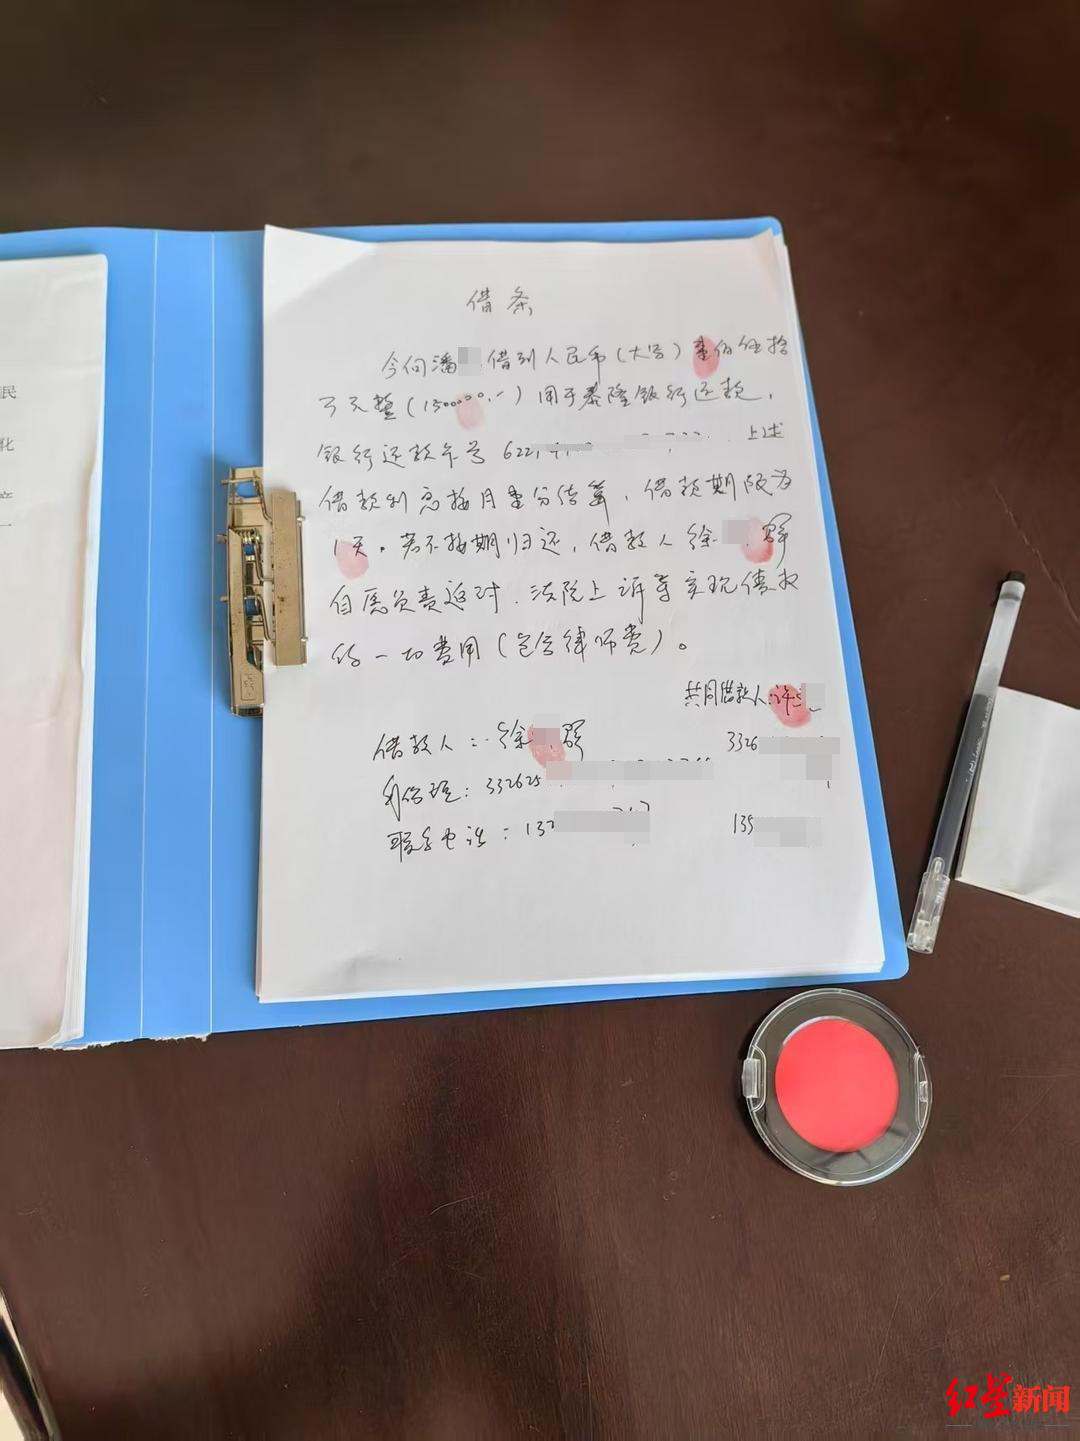 借条
今向潘 借到人民币(大写)壹佰伍拾
万元整(1500000.-)用于泰隆银行还款,
银行还款卡号 622 上述
借款利息按月壹分结算,借款期限为
1天。若不按期归还,借款人徐 群
自愿负责返还、法院上诉等实现债权
的一切费用(包含律师费)。
共同借款人:许
借款人:徐 群
3326
身份证:332625
联系电话:137
135
民
化
产
一
红星新闻